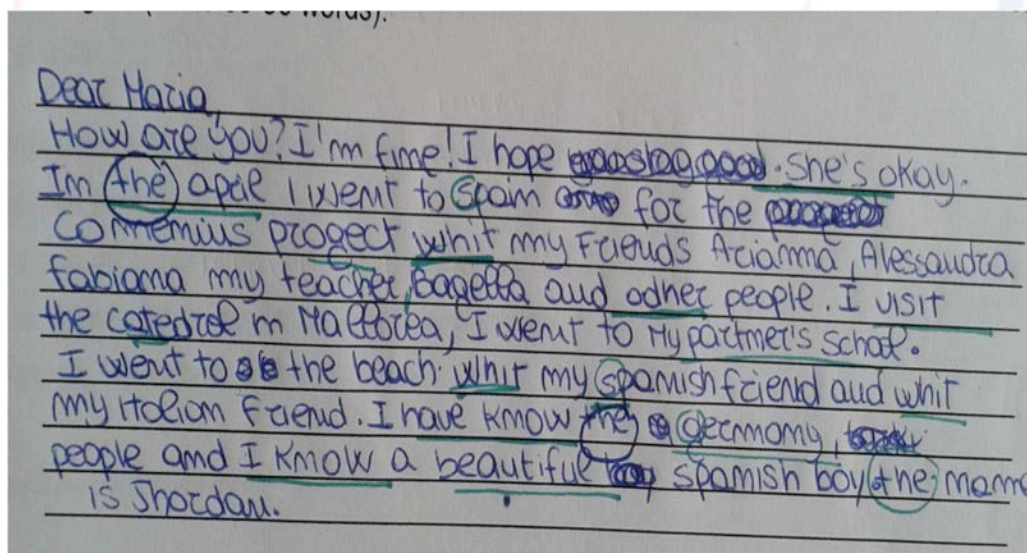 words).
Dear Maria,
How are you? I'm fime! I hope . She's okay.
Im the apríl I went to Spain for the
Commemius progect whit my Friends Arianna, Alessandra
fabiana my teacher, bagella and odher people. I visit
the catedral in Mallorca, I went to My partmer's school.
I went to the beach whit my Spanish friend and whit
my Italian Friend. I have know the germany,
people and I know a beautiful spanish boy the name
is Jhordan.